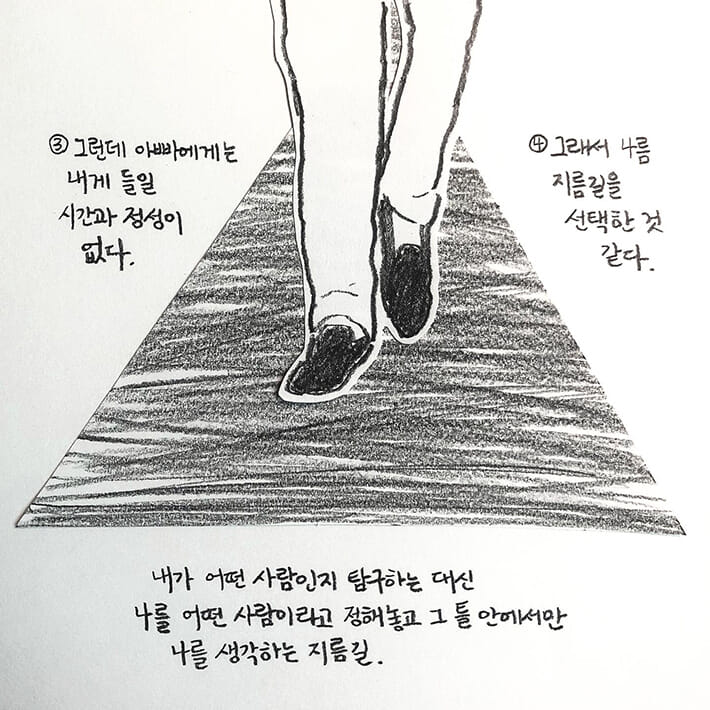 ③ 그런데 아빠에게는
내게 들일
시간과 정성이
없다.
④ 그래서 나름
지름길을
선택한 것
같다.
내가 어떤 사람인지 탐구하는 대신
나를 어떤 사람이라고 정해놓고 그 틀 안에서만
나를 생각하는 지름길.